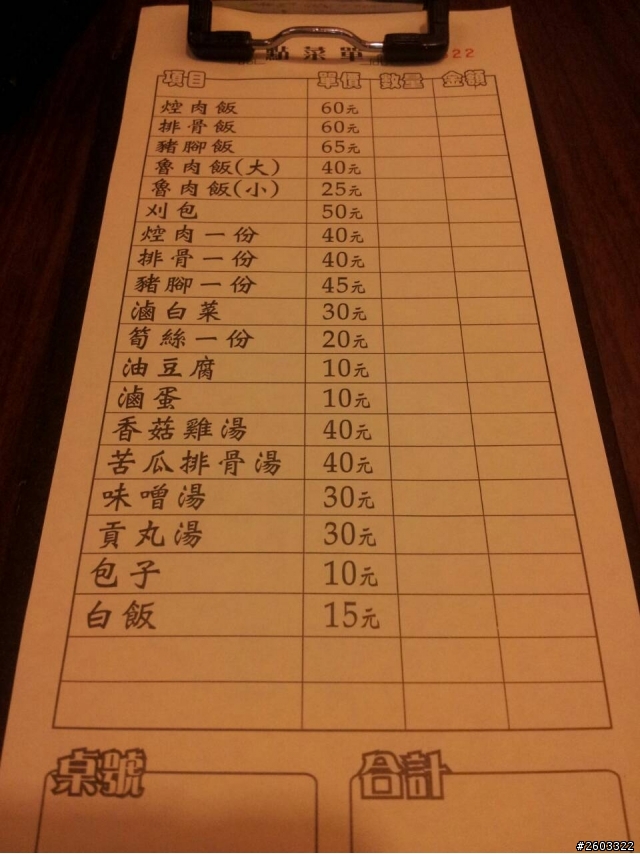 點菜單 22
項目 單價 數量 金額
焢肉飯 60元
排骨飯 60元
豬腳飯 65元
魯肉飯(大) 40元
魯肉飯(小) 25元
刈包 50元
焢肉一份 40元
排骨一份 40元
豬腳一份 45元
滷白菜 30元
筍絲一份 20元
油豆腐 10元
滷蛋 10元
香菇雞湯 40元
苦瓜排骨湯 40元
味噌湯 30元
貢丸湯 30元
包子 10元
白飯 15元
桌號 合計
#2603322